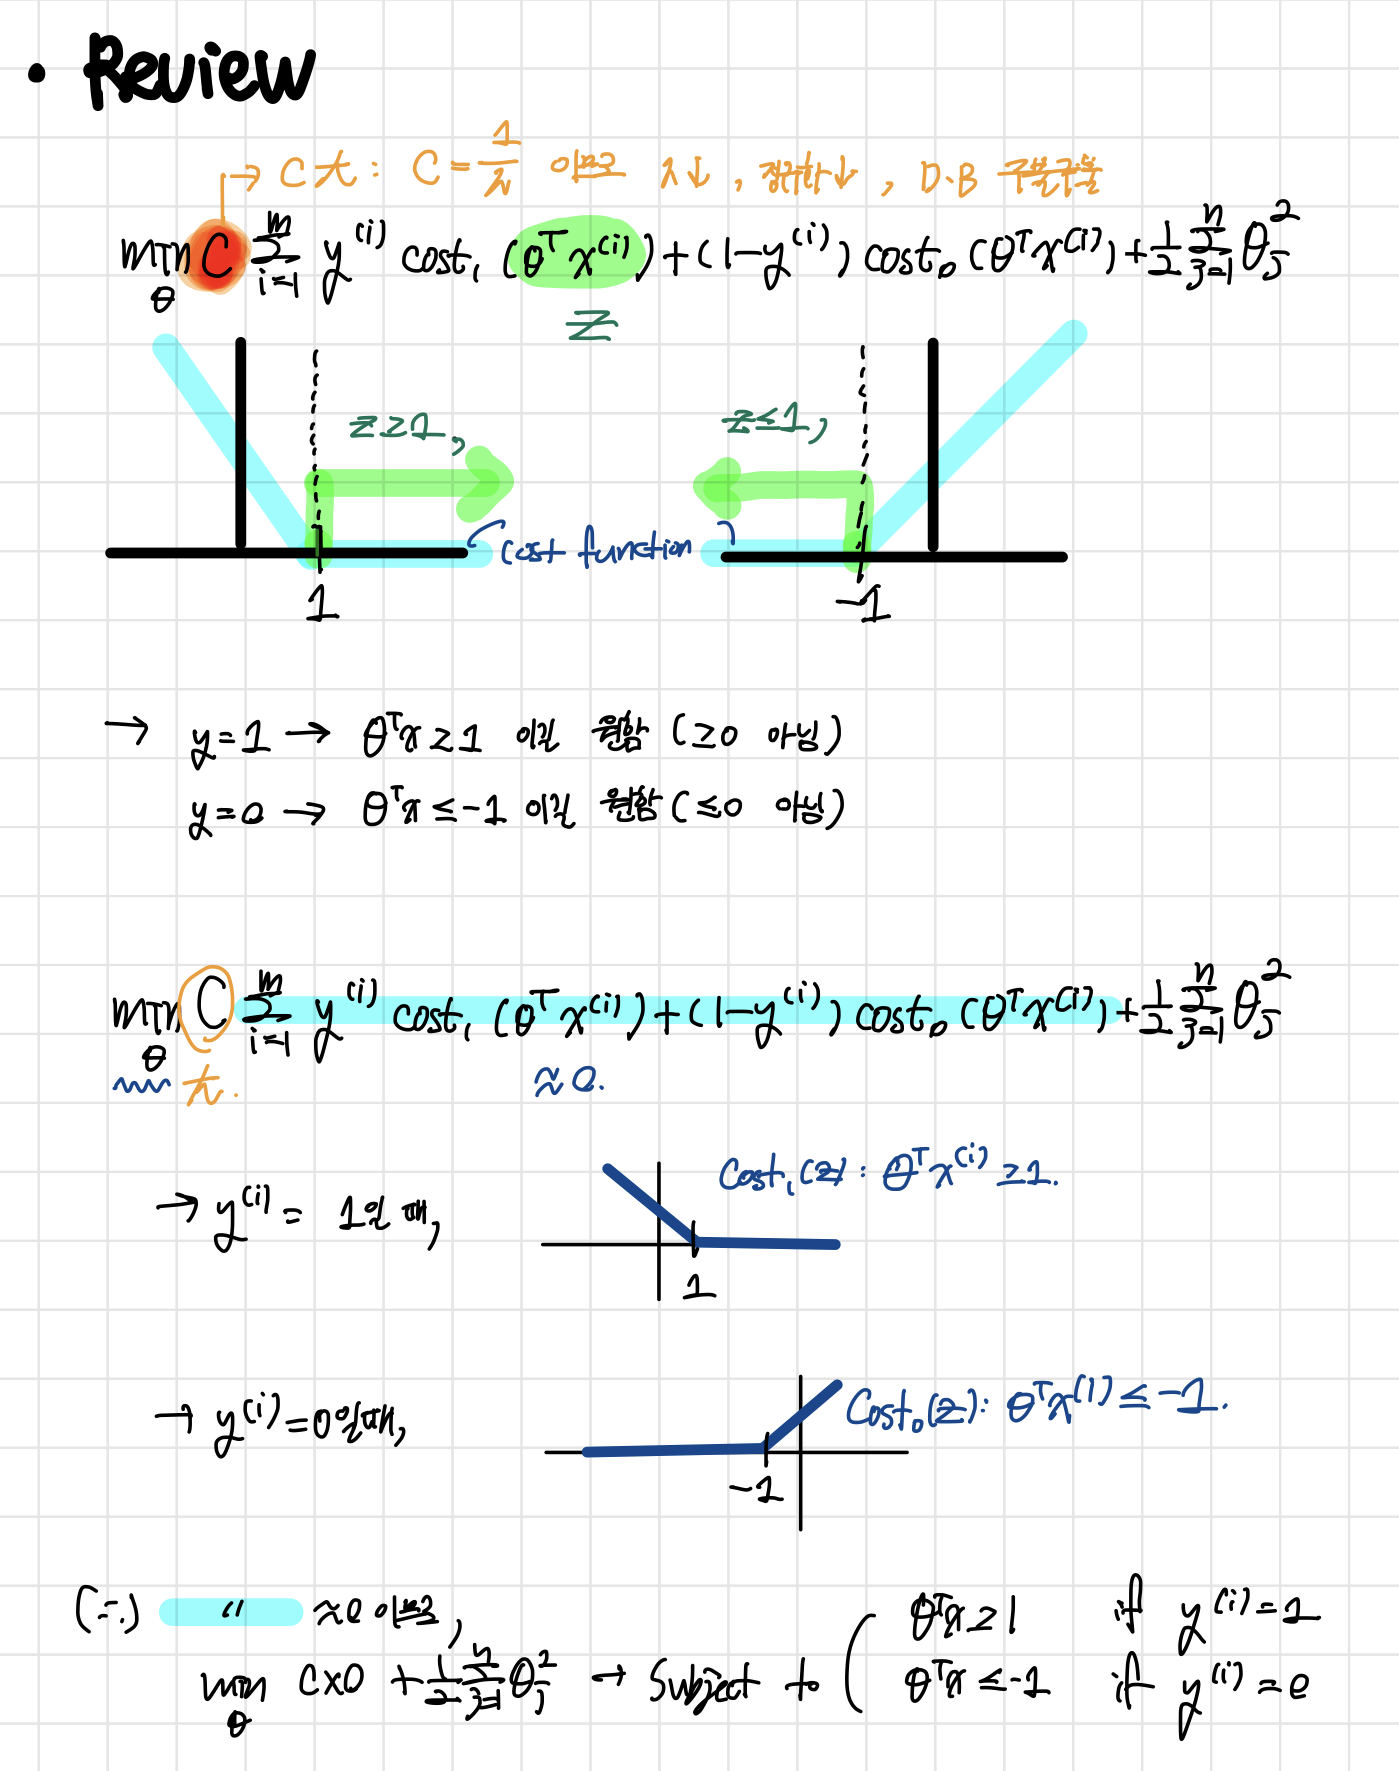 • Review
→ C大: C = 1/λ 이므로 λ↓, 정규화↓, D.B 구불구불
min θ C Σ i=1 m y⁽ⁱ⁾ cost₁ (θᵀx⁽ⁱ⁾) + (1-y⁽ⁱ⁾) cost₀ (θᵀx⁽ⁱ⁾) + 1/2 Σ j=1 n θj²
z
z≥1, z≤1,
( cost function )
1 -1
→ y=1 → θᵀx≥1 이길 원함 (≥0 아님)
y=0 → θᵀx≤-1 이길 원함 (≤0 아님)
min θ C Σ i=1 m y⁽ⁱ⁾ cost₁ (θᵀx⁽ⁱ⁾) + (1-y⁽ⁱ⁾) cost₀ (θᵀx⁽ⁱ⁾) + 1/2 Σ j=1 n θj²
大. ≈0.
Cost₁(z): θᵀx⁽ⁱ⁾≥1.
→ y⁽ⁱ⁾= 1일 때,
1
→ y⁽ⁱ⁾=0일때, Cost₀(z): θᵀx⁽ⁱ⁾≤-1.
-1
(∴) 〃 ≈0 이므로, θᵀx≥1 if y⁽ⁱ⁾=1
min θ C×0 + 1/2 Σ j=1 n θj² → Subject to ( θᵀx≤-1 if y⁽ⁱ⁾=0